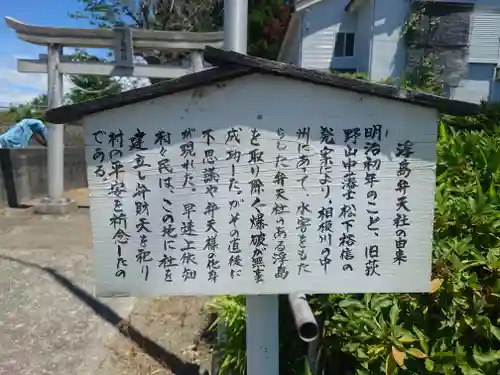 浮島弁天社の由来
明治初年のこと、旧荻
野山中藩士松下祐信の
発案により、相模川の中
洲にあって、水害をもた
らした弁天社のある浮島
を取り除く爆破が無事
成功した。がその直後に
不思議や弁天様の化身
が現れた。早速上依知
村民は、この地に社を
建立し弁財天を祀り
村の平安を祈念したの
である。